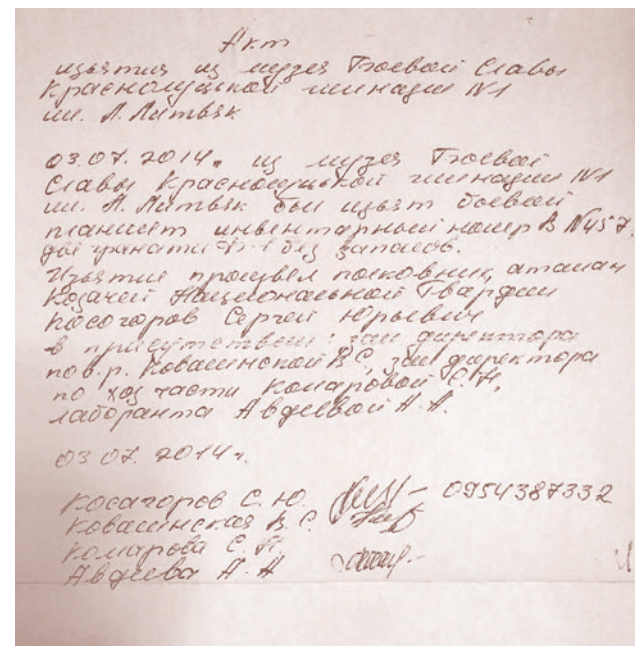 Акт
изъятия из музея Боевой Славы
Краснолучской гимназии №1
им. Л. Литвяк
03.07.2014г. из музея Боевой
Славы Краснолучской гимназии №1
им. Л. Литвяк был изъят боевой
планшет инвентарный номер В №457.
две гранати Ф-1 без запалов.
Изъятие произвел полковник, атаман
Козачей Национальной Гвардии
Косогоров Сергей Юрьевич
в присутствии: зам директора
по в.р. Ковалинской В.С, зам директора
по хоз части Комаровой С.Н,
лаборанта Авдеевой А.А.
03 07. 2014г.
Косагоров С.Ю. 0954387332
Ковалинская В.С.
Комарова С.Н.
Авдеева А.А